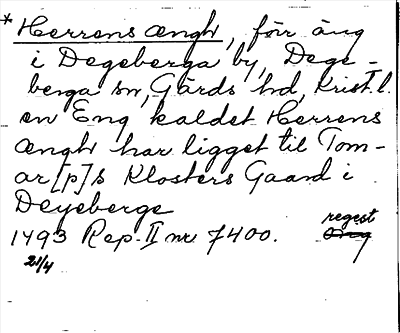 * Herrens ængh, förr äng
i Degeberga by, Dege-
berga sn, Gärds hd, Krist. l.
en Eng kaldet Herrens
ængh har ligget til Tom-
ar[p]s Klosters Gaard i
Deyeberge
1493 Rep. II nr 7400. regest
21/4